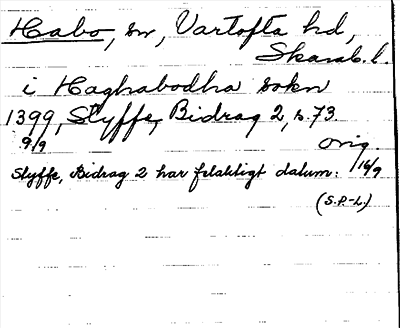 Habo, sn, Vartofta hd,
Skarab. l.
i Haghabodha sokn
1399, Styffe, Bidrag 2, s. 73.
9/9 orig.
Styffe, Bidrag 2 har felaktigt datum: 16/9
(S.P-L.)